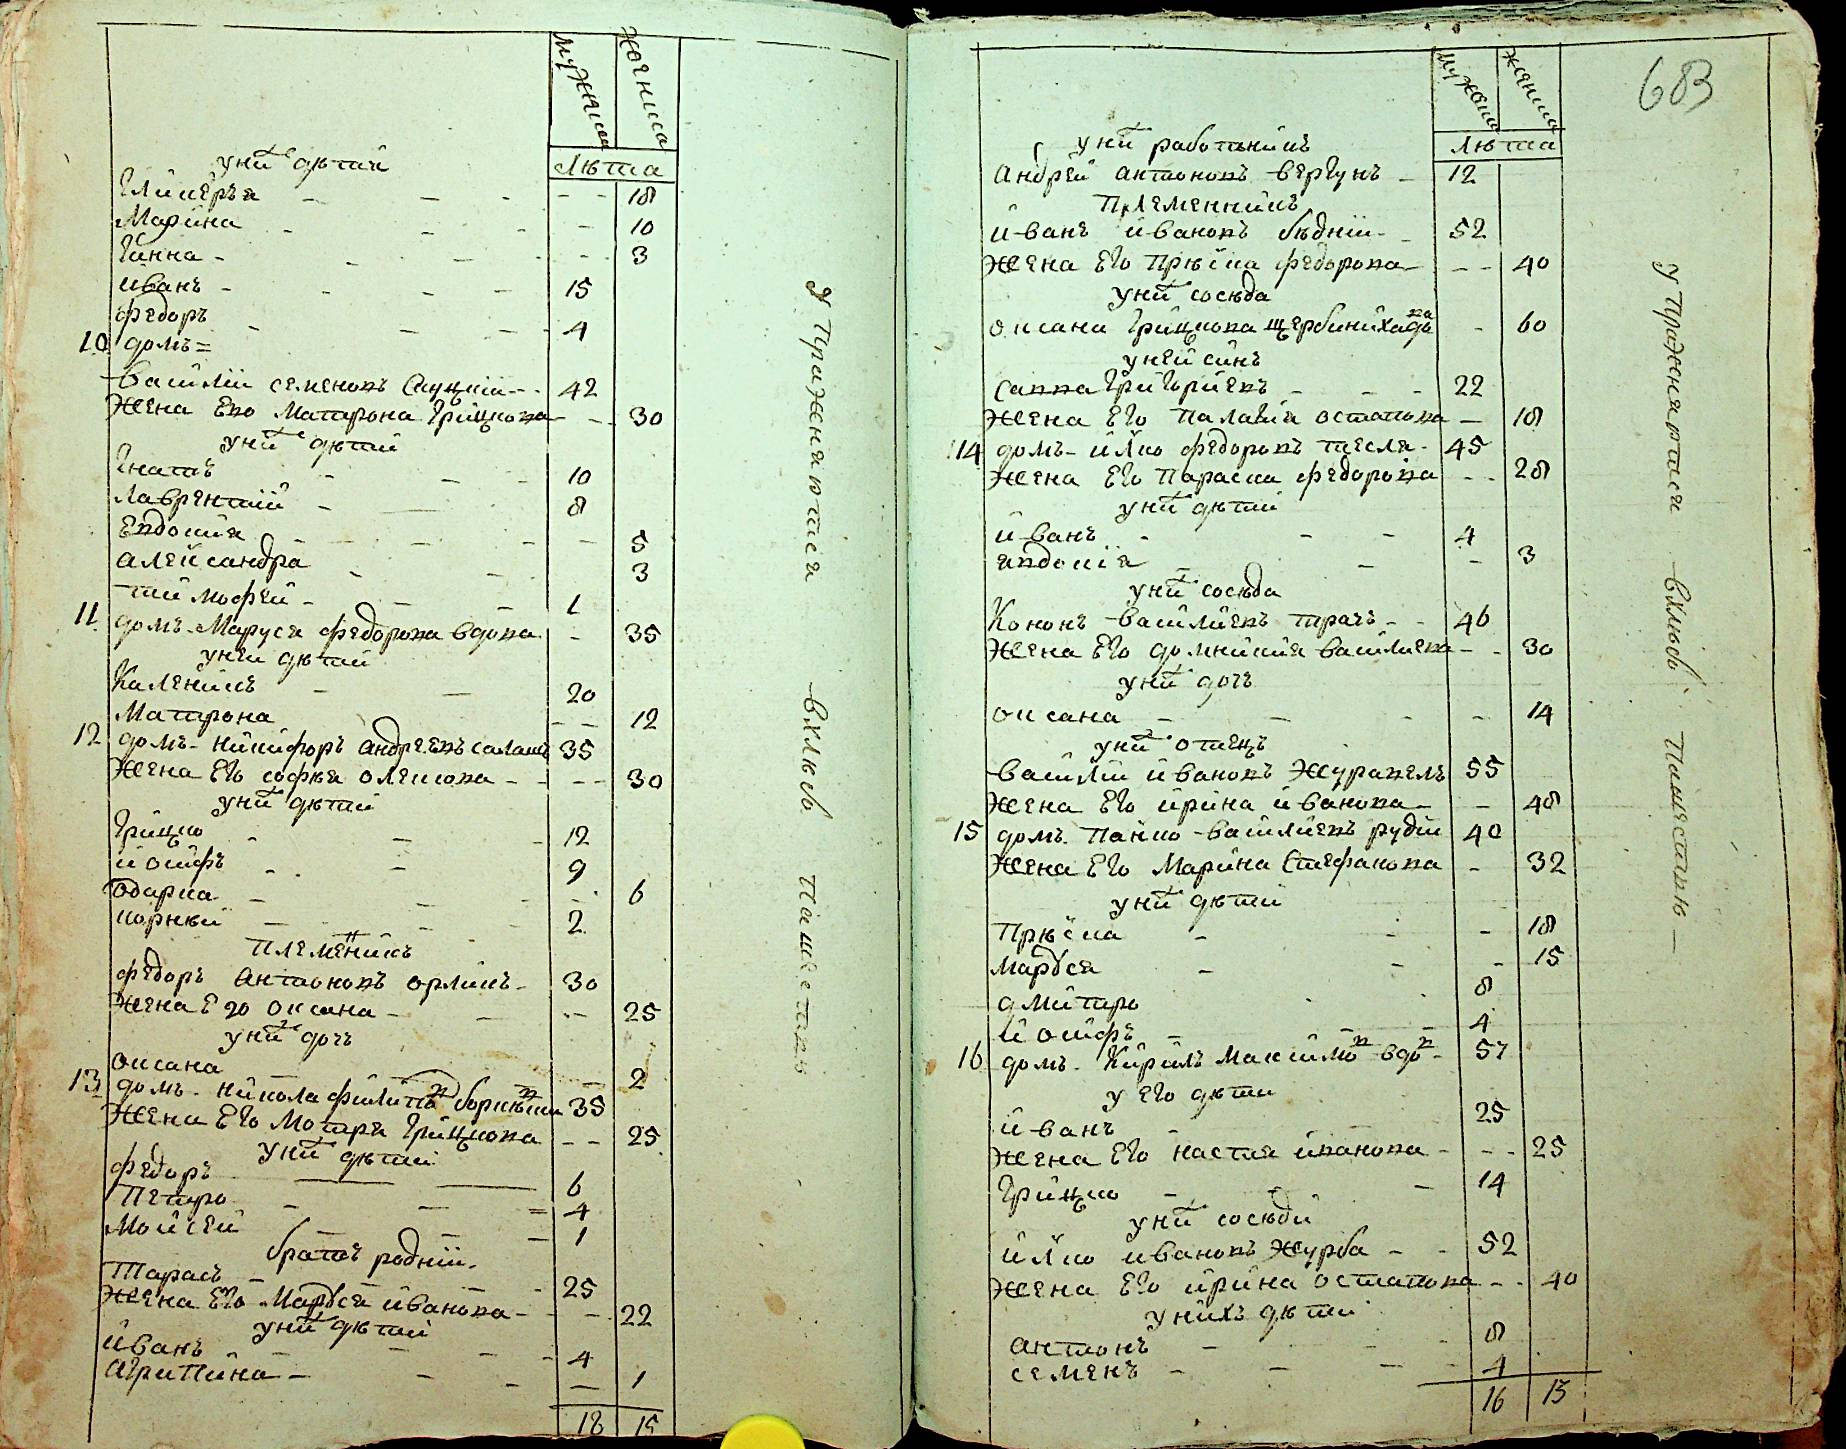 мужеска женска
лѣта
у них дѣтей
Гликеръя 18
Марина 10
Ганна 3
иванъ 15
федоръ 4
10 домъ =
василий семеновъ Слуцкий 42
жена Его Матрона Грицкова 30
у них дѣтей
Гнатъ 10
Лаврентий 8
Евдокия 5
алеѯандра 3
тимофей 1
11 домъ Маруся федорова вдова 35
у неи дѣтей
Каленикъ 20
Матрона 12
12 домъ никифоръ андреевъ 35
жена Его софья олексова 30
у них дѣтей
Грицко 12
иосифъ 9
Одарка 6
корнѣй 2
племеникъ
федоръ антоновъ орликъ 30
жена Его оксана 25
у них дочъ
оксана 2
13 домъ никола филипов 35
жена Его Мотря Грицкова 25
у них дѣтей
федоръ 6
петро 4
Мойсей 1
братъ родний
тарасъ 25
жена Его Маруся иванова 22
у них дѣтей
иванъ 4
агрипина 1
18 15
упражняются в хлѣбопашествѣ
683
мужеска женска
лѣта
у них работникъ
андрей антоновъ вергунъ 12
племенникъ
иванъ ивановъ бѣдний 52
жена Его прѣска федорова 40
у них сосѣда
оксана Грицкова щербиниха вдова 60
у неи синъ
савва Григориевъ 22
жена Его палагия остапова 18
14 домъ илко федоровъ тесля 45
жена Его параска федорова 28
у них дѣтей
иванъ 4
явдокия 3
у них сосѣда
Кононъ василиевъ ткачъ 46
жена Его домникия василиева 30
у них дочъ
оксана 14
у них отецъ
василий ивановъ журавель 55
жена Его ирина иванова 48
15 домъ панко василиевъ рудий 40
жена Его Марина Стефанова 32
у них дѣтей
прѣска 18
маруся 15
дмитро 8
иосифъ 4
16 домъ Кирилъ Максимов вдов 57
у Его дѣти
иванъ 25
жена Его настя иванова 25
Грицко 14
у них сосѣди
илко ивановъ журба 52
жена Его ирина остапова 40
у нихъ дѣтей
антонъ 8
семенъ 4
16 13
упражняются в хлѣбопашествѣ